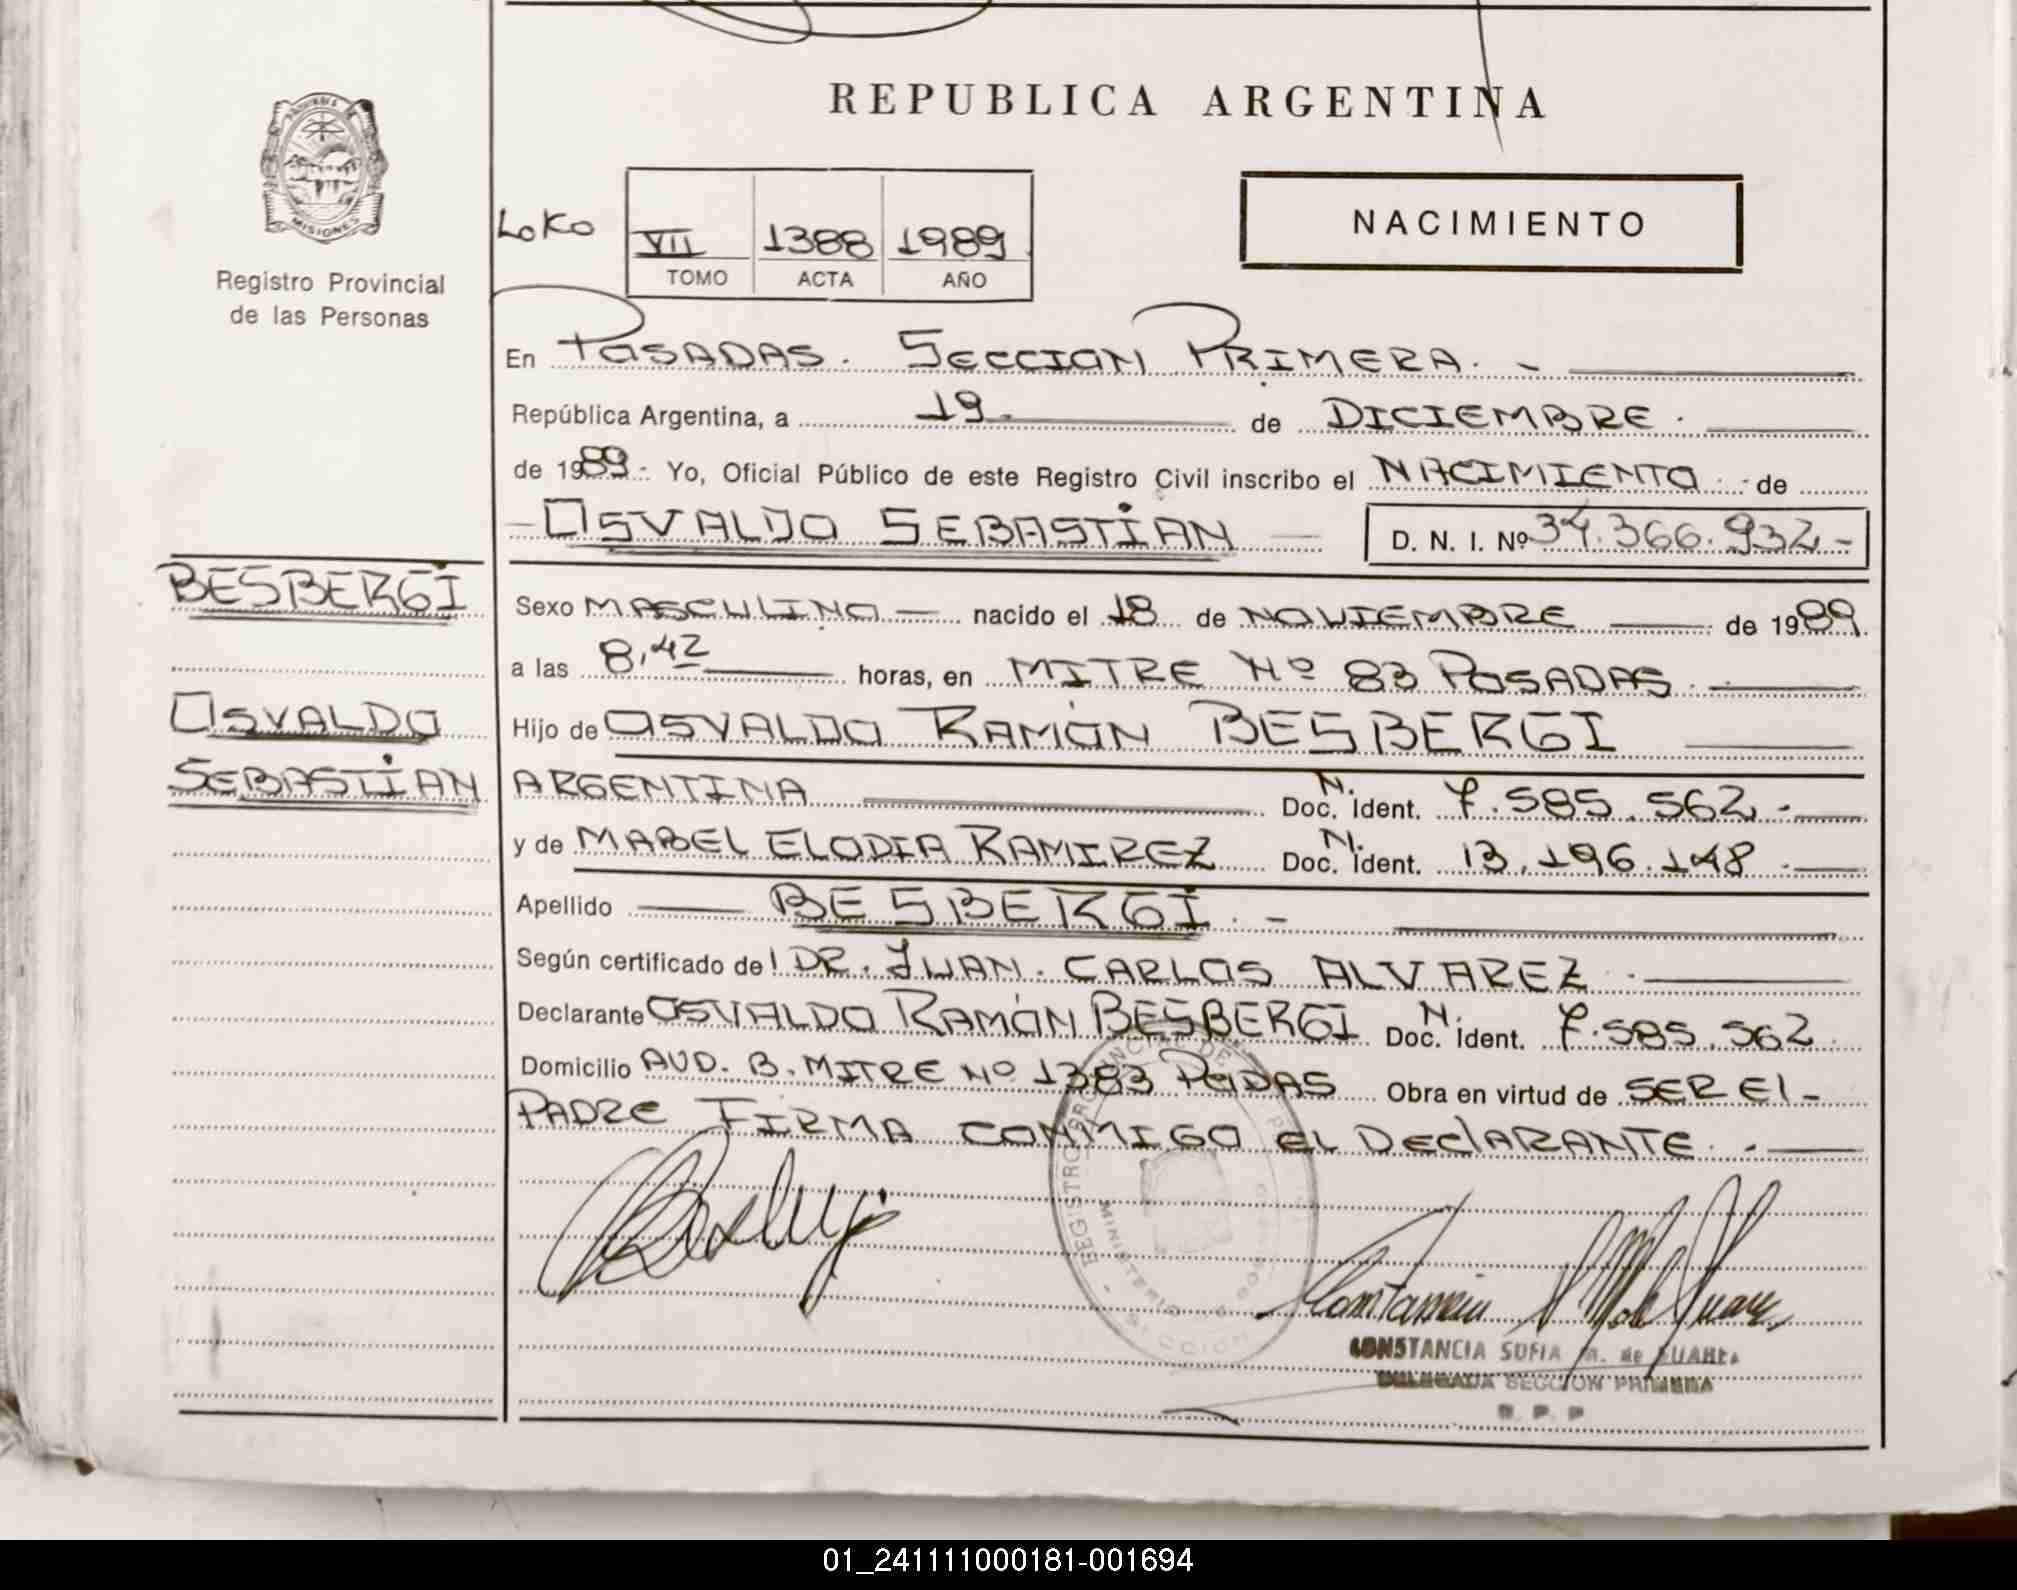 REPUBLICA ARGENTINA
MISIONES
Registro Provincial
de las Personas
LOKO
VII 1388 1989
TOMO ACTA AÑO
NACIMIENTO
En POSADAS. SECCION PRIMERA. -
República Argentina, a 19 de DICIEMBRE.
de 1989.- Yo, Oficial Público de este Registro Civil inscribo el NACIMIENTO de
- OSVALDO SEBASTIAN D. N. I. Nº 34.366.932-
BESBERGI
OSVALDO
SEBASTIAN
Sexo MASCULINO — nacido el 18 de NOVIEMBRE — de 1989
a las 8,42 horas, en MITRE Nº 83 POSADAS.
Hijo de OSVALDO RAMÓN BESBERGI
ARGENTINA Doc. N. Ident. 7.585.562.-
y de MABEL ELODIA RAMIREZ Doc. N. Ident. 13.196.148.-
Apellido — BESBERGI. -
Según certificado del DR. JUAN. CARLOS ALVAREZ.
Declarante OSVALDO RAMÓN BESBERGI Doc. N. Ident. 7.585.562
Domicilio AVD. B. MITRE Nº 1383 PDAS Obra en virtud de SER El-
PADRE FIRMA CONMIGO EL DEClARANTE. -
REGISTRO PROVINCIAL DE
MINISTERIO DE
CONSTANCIA SOFIA M. de SUAREZ
DELEGADA SECCION PRIMERA
R. P. P
01_241111000181-001694